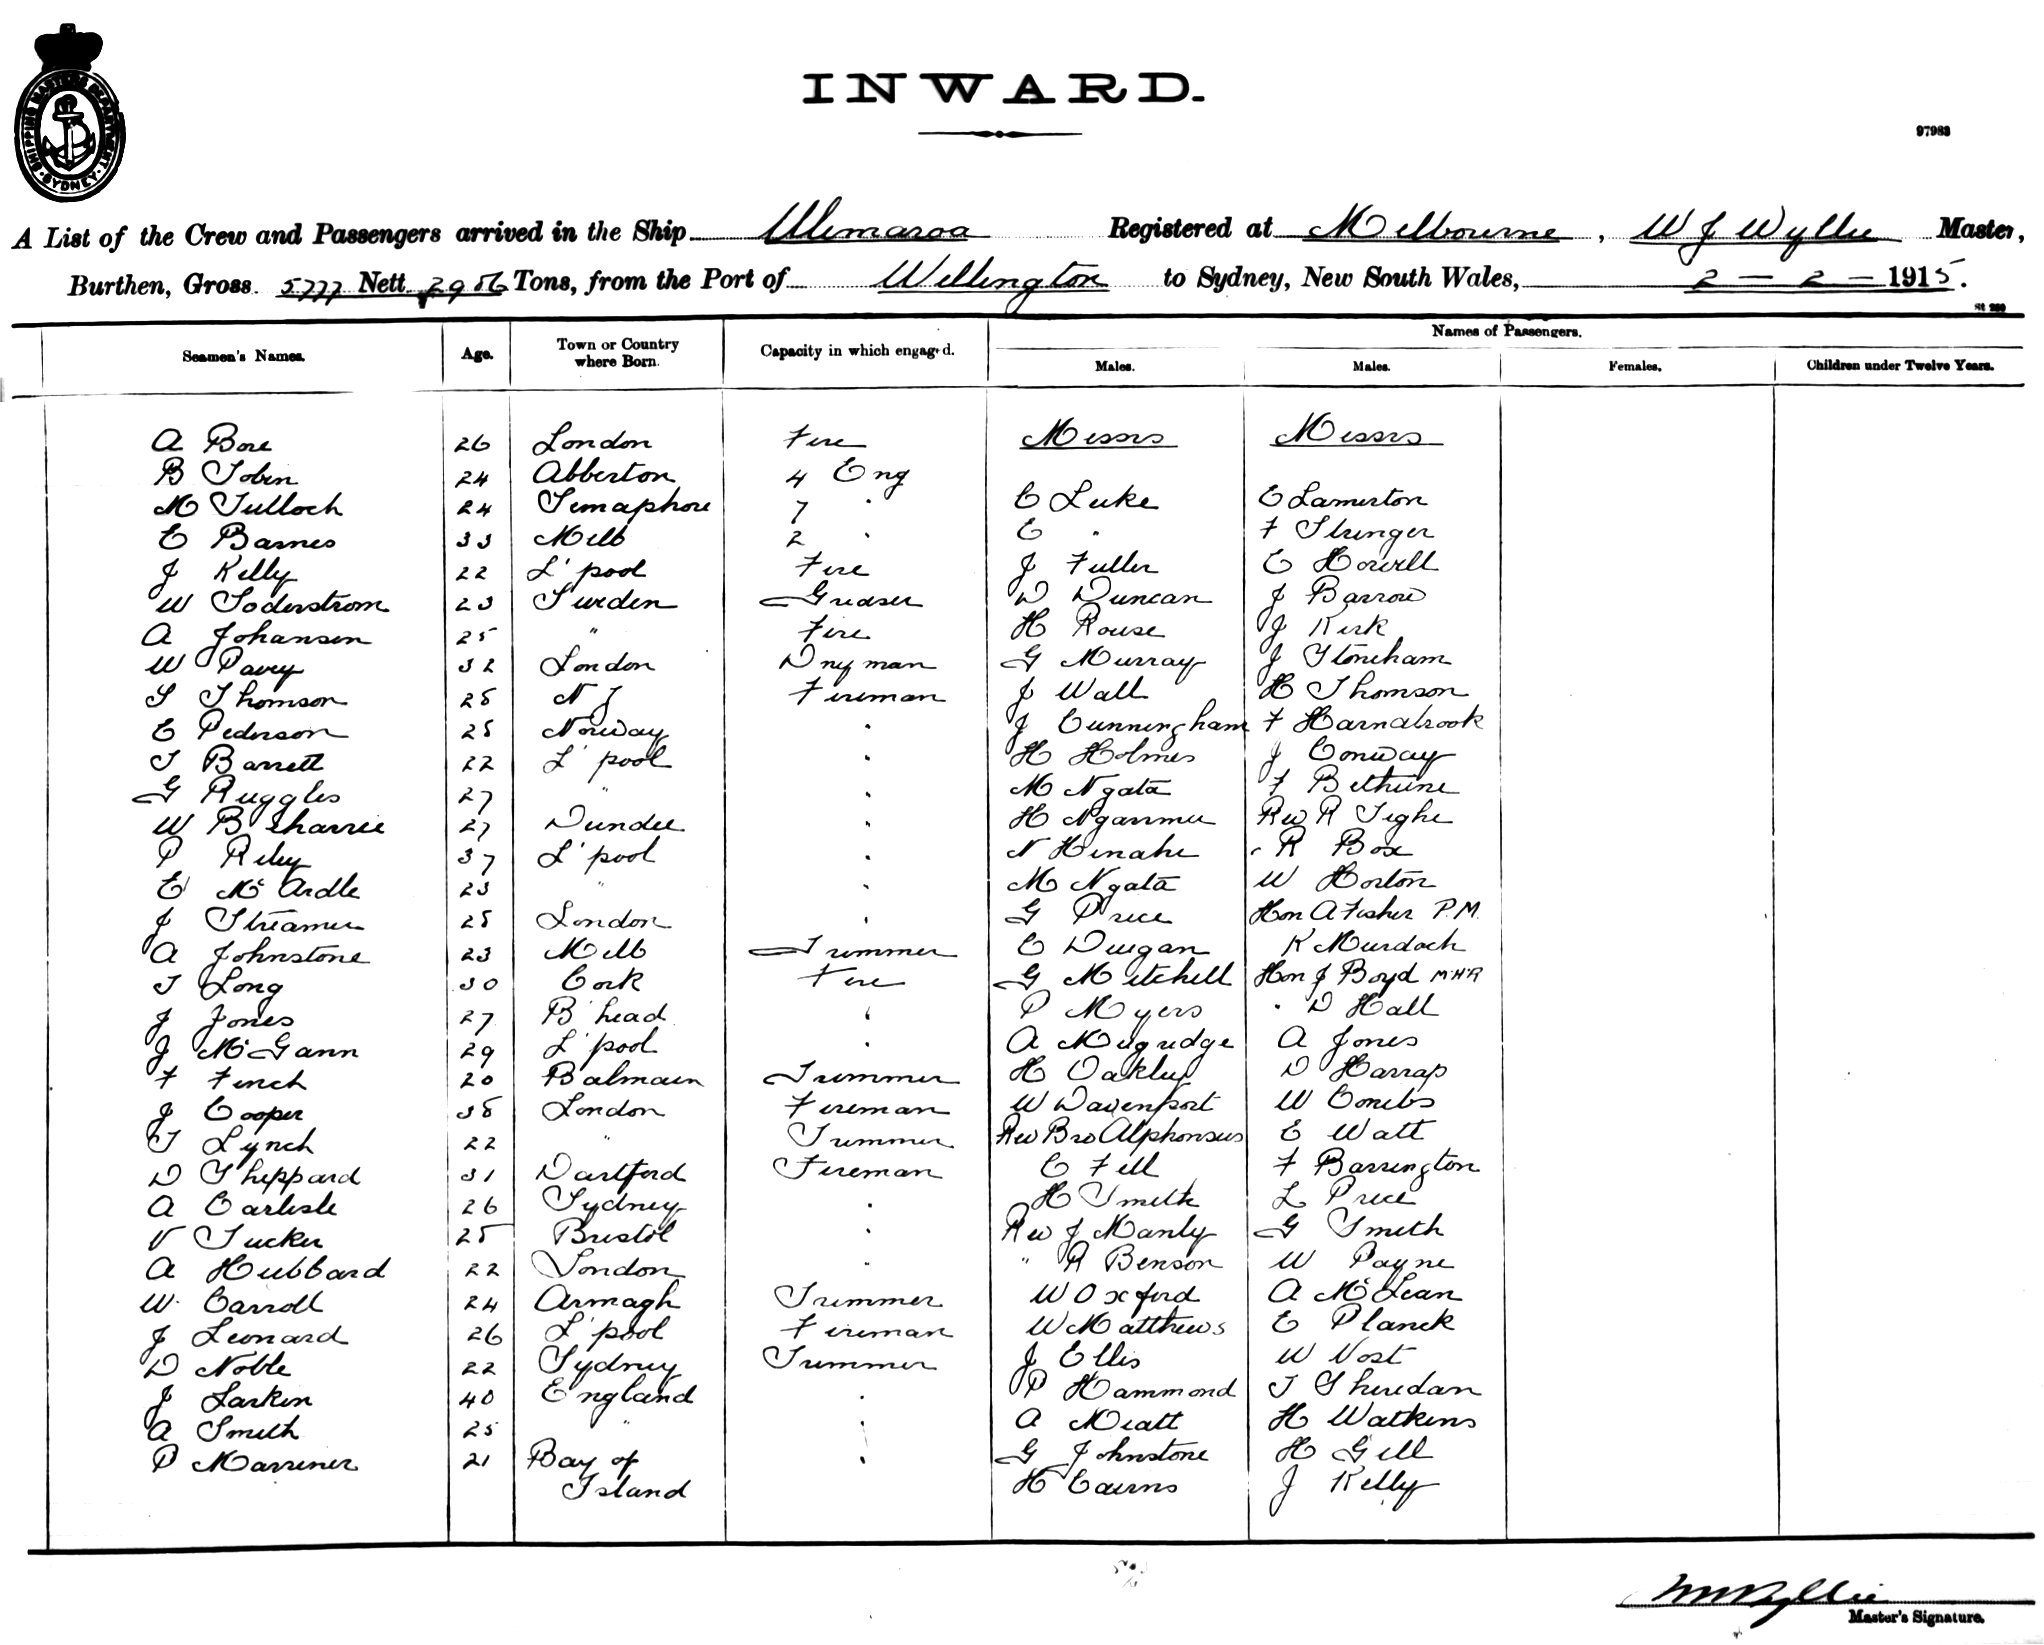 INWARD.
97983
SHIPPING MASTERS DEPARTMENT SYDNEY
A List of the Crew and Passengers arrived in the Ship Ulimaroa Registered at Melbourne, W J Wyllie Master,
Burthen, Gross 5777 Nett 2956 Tons, from the Port of Wellington to Sydney, New South Wales, 2 - 2 - 1915.
St 269
Names of Passengers.
Seamen's Names. Age. Town or Country where Born. Capacity in which engaged. Males. Males. Females. Children under Twelve Years.
A Bore 26 London Fire Messrs Messrs
B Tobin 24 Abberton 4 Eng
M Tulloch 24 Semaphore 7 " C Luke E Lamerton
E Barnes 33 Melb 2 " E " F Stringer
J Kelly 22 L'pool Fire J Fuller E Howell
W Soderstrom 23 Sweden Greaser D Duncan J Barrow
A Johansen 25 " Fire H Rouse J Kirk
W Pavey 32 London Dnyman G Murray J Stoneham
S Thomson 28 N Z Fireman J Wall H Thomson
E Pederson 25 Norway " J Cunningham F Harnabrook
T Barrett 22 L'pool " H Holmes J Conway
G Ruggles 27 " " M Ngata F Bethune
W B Sharrie 27 Dundee " H Ngarimu Rev R Tighe
P Riley 37 L'pool " N Henahe " R Box
E McArdle 23 " " M Ngata W Horton
J Streamer 25 London " G Price Hon A Fisher P.M.
A Johnstone 23 Melb Trimmer E Duigan K Murdoch
T Long 30 Cork Fire G Mitchell Hon J Boyd MHR
J Jones 27 B'head " P Myers " D Hall
J McGann 29 L'pool " A Mugridge A Jones
F Finch 20 Balmain Trimmer H Oakley D Harrap
J Cooper 38 London Fireman W Davenport W Combs
T Lynch 22 " Trimmer Rev Bro Alphonsus E Watt
D Sheppard 31 Dartford Fireman C Fell F Barrington
A Carlisle 26 Sydney " H Smith L Price
V Tucker 25 Bristol " Rev J Manly G Smith
A Hubbard 22 London " " R Benson W Payne
W Carroll 24 Armagh Trimmer W Oxford A McLean
J Leonard 26 L'pool Fireman W Matthews E Planck
D Noble 22 Sydney Trimmer J Ellis W Vost
J Larkin 40 England " P Hammond T Sheridan
A Smith 25 " " A Miatt H Watkins
P Marriner 21 Bay of " G Johnstone H Gill
Island H Cairns J Kelly
W J Wyllie
Master's Signature.